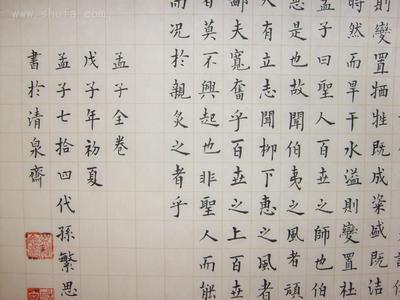 則變置牺牲既成粢盛既洁
時然而旱干水溢則變置社
孟子曰聖人百世之師也伯
惠是也故聞伯夷之風者頑
人有立志聞柳下惠之風者
鄙夫寬奮乎百世之上百世
者莫不興起也非聖人而能
而况於親炙之者乎
孟子全卷
戊子年初夏
孟子七拾四代孫繁思
書於清泉齋